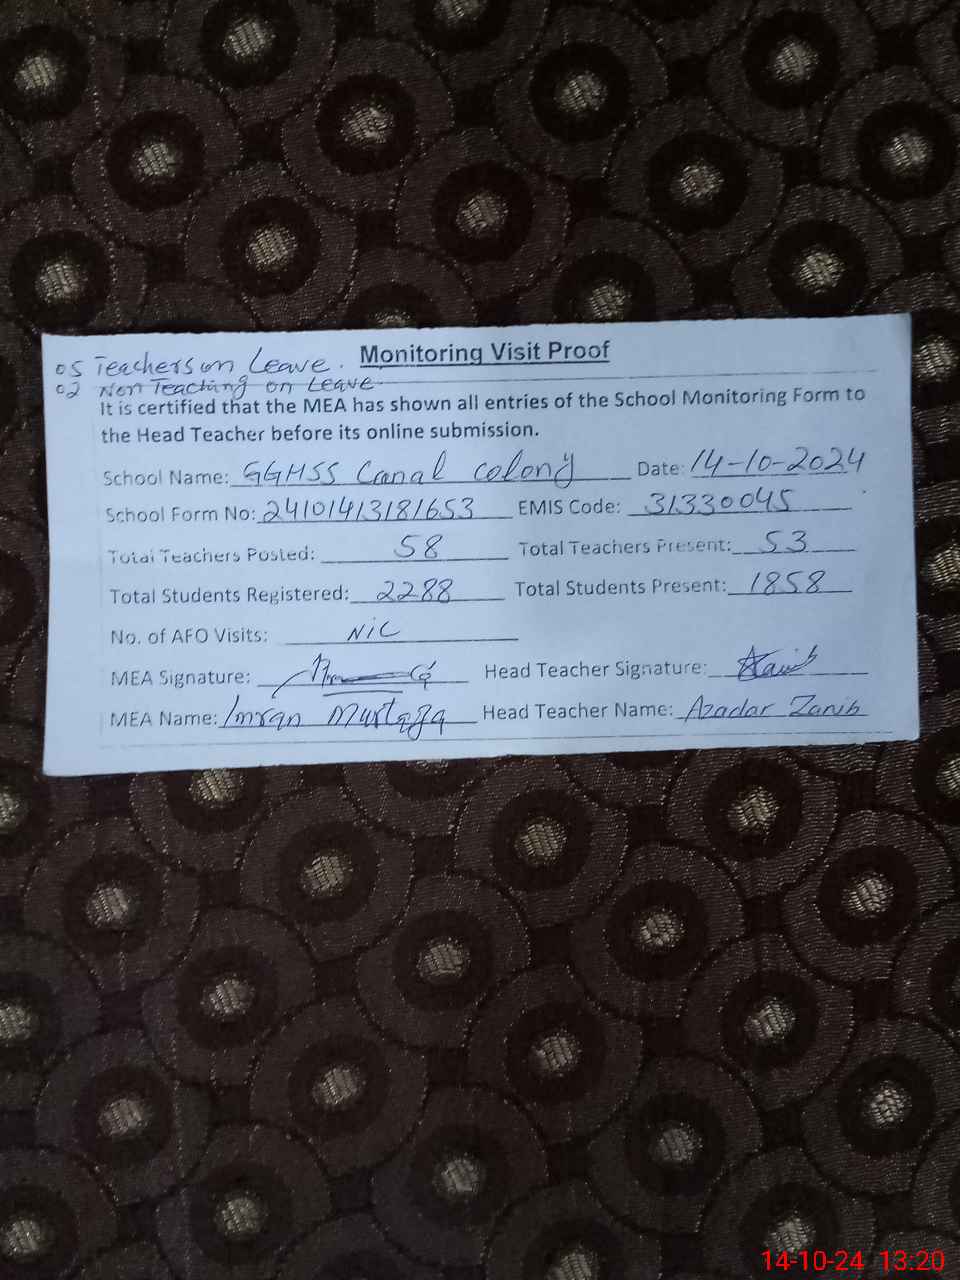 Monitoring Visit Proof
05 Teachers on Leave.
02 Non Teaching on Leave
It is certified that the MEA has shown all entries of the School Monitoring Form to
the Head Teacher before its online submission.
School Name: GGHSS Canal colony Date: 14-10-2024
School Form No: 24101413181653 EMIS Code: 31330045
Total Teachers Posted: 58 Total Teachers Present: 53
Total Students Registered: 2288 Total Students Present: 1858
No. of AFO Visits: NiL
MEA Signature: Head Teacher Signature:
MEA Name: Imran Murtaza Head Teacher Name: Azadar Zanib
14-10-24 13:20